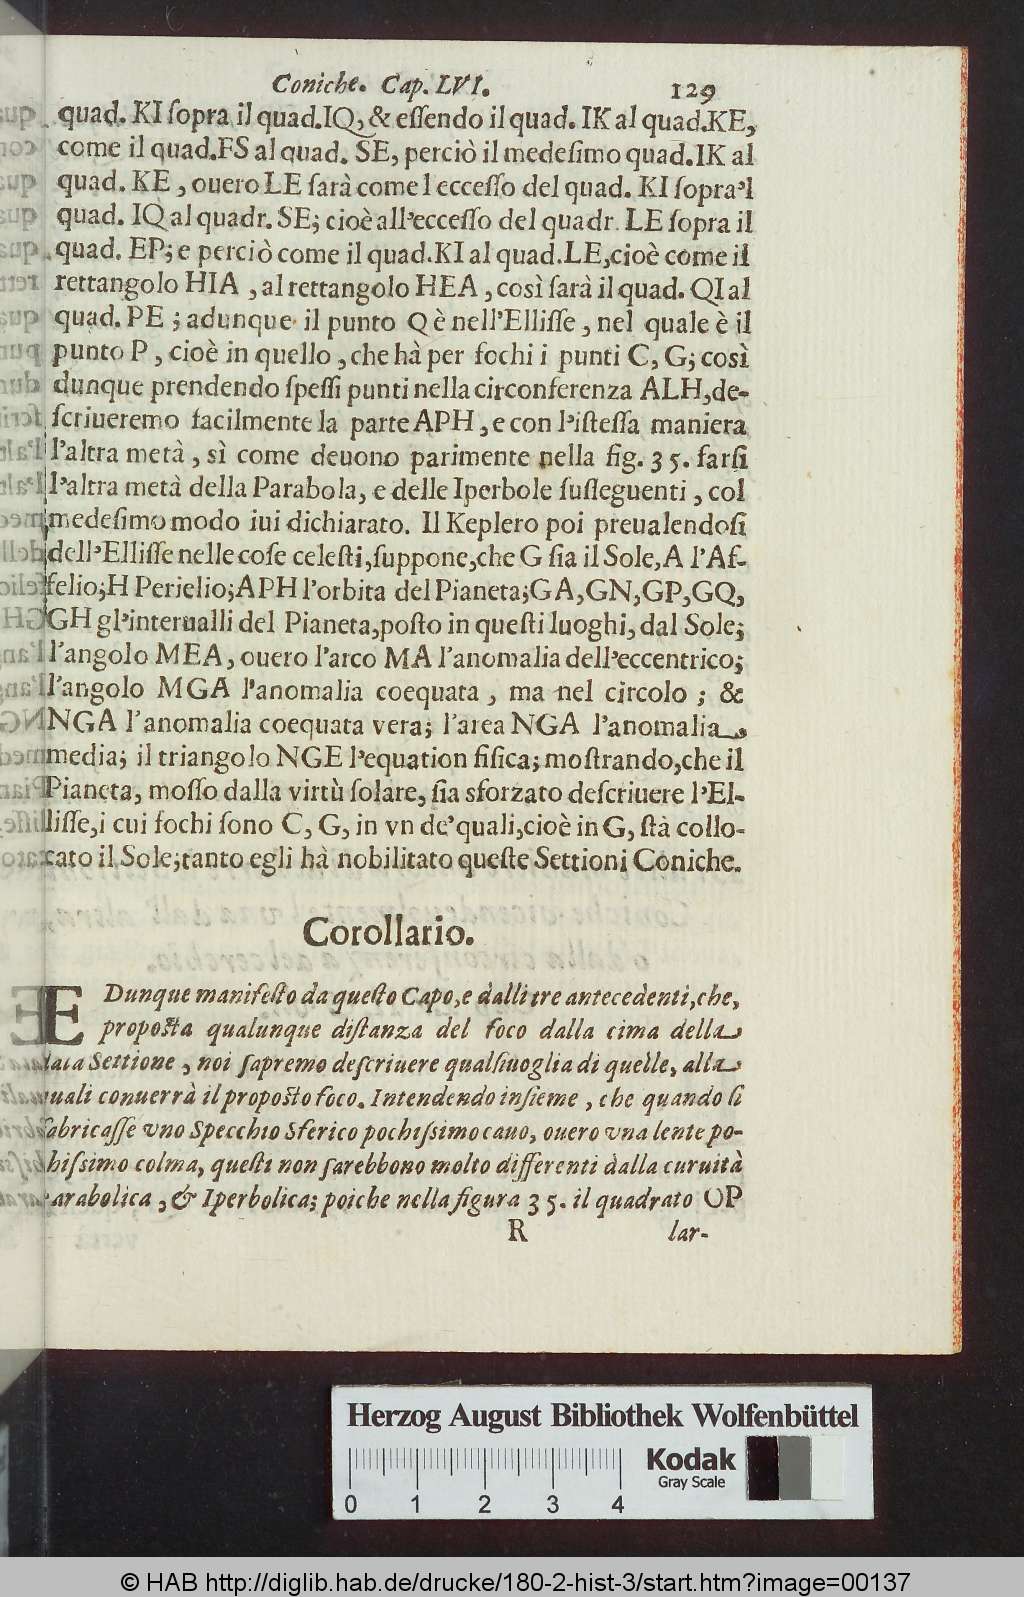 Coniche. Cap. LVI. 129
quad. KI ſopra il quad.IQ, & eſſendo il quad. IK al quad.KE,
come il quad.FS al quad. SE, perciò il medeſimo quad.IK al
quad. KE, ouero LE ſarà come l ecceſſo del quad. KI ſopra'l
quad. IQ al quadr. SE; cioè all'ecceſſo del quadr. LE ſopra il
quad. EP; e perciò come il quad.KI al quad.LE,cioè come il
rettangolo HIA, al rettangolo HEA, così ſarà il quad. QI al
quad. PE; adunque il punto Q è nell'Elliſſe, nel quale è il
punto P, cioè in quello, che hà per fochi i punti C, G; così
dunque prendendo ſpeſſi punti nella circonferenza ALH, de-
ſcriueremo facilmente la parte APH, e con l'iſteſſa maniera
l'altra metà, sì come deuono parimente nella fig. 35. farſi
l'altra metà della Parabola, e delle Iperbole ſuſſeguenti, col
medeſimo modo iui dichiarato. Il Keplero poi preualendoſi
dell'Elliſſe nelle coſe celeſti, ſuppone, che G ſia il Sole, A l'Af-
felio; H Perielio; APH l'orbita del Pianeta; GA, GN, GP, GQ,
GH gl'interualli del Pianeta, poſto in queſti luoghi, dal Sole;
l'angolo MEA, ouero l'arco MA l'anomalia dell'eccentrico;
l'angolo MGA l'anomalia coequata, ma nel circolo; &
NGA l'anomalia coequata vera; l'area NGA l'anomalia
media; il triangolo NGE l'equation fiſica; moſtrando, che il
Pianeta, moſſo dalla virtù ſolare, ſia sforzato deſcriuere l'El-
liſſe, i cui fochi ſono C, G, in vn de' quali, cioè in G, ſtà collo-
cato il Sole; tanto egli hà nobilitato queſte Settioni Coniche.
Corollario.
E Dunque manifeſto da queſto Capo, e dalli tre antecedenti, che,
propoſta qualunque diſtanza del foco dalla cima della
data Settione, noi ſapremo deſcriuere qualſiuoglia di quelle, alla
quali conuerrà il propoſto foco. Intendendo inſieme, che quando ſi
fabricaſſe vno Specchio Sferico pochiſſimo cauo, ouero vna lente po-
hiſſimo colma, queſti non ſarebbono molto differenti dalla curuità
arabolica, & Iperbolica; poiche nella figura 35. il quadrato OP
R lar-
Herzog August Bibliothek Wolfenbüttel
Kodak
Gray Scale
0 1 2 3 4
© HAB http://diglib.hab.de/drucke/180-2-hist-3/start.htm?image=00137